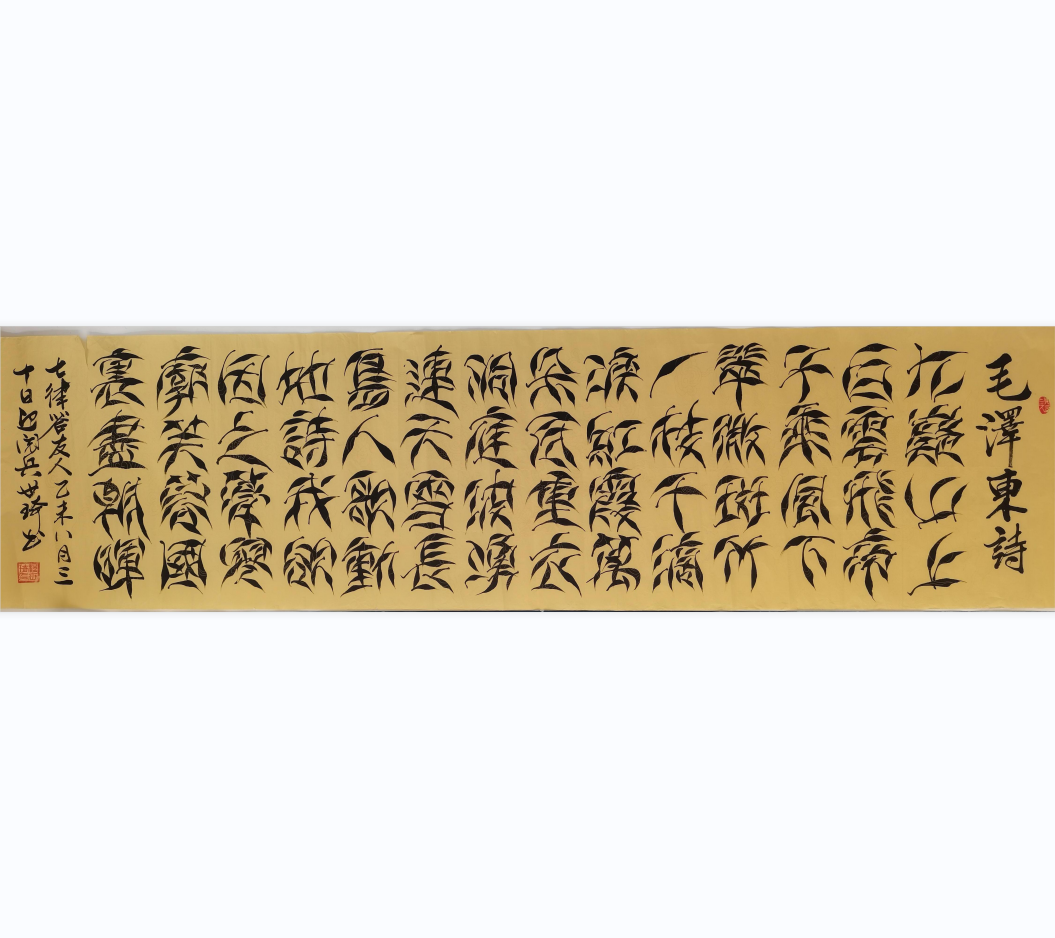 毛澤東詩
九嶷山上
白雲飛帝
子乘風下
翠微斑竹
一枝千滴
淚紅霞萬
朵百重衣
洞庭波湧
連天雪長
島人歌動
地詩我欲
因之夢寥
廓芙蓉國
裏盡朝暉
七律答友人乙未八月三
十日迎阅兵世琦书